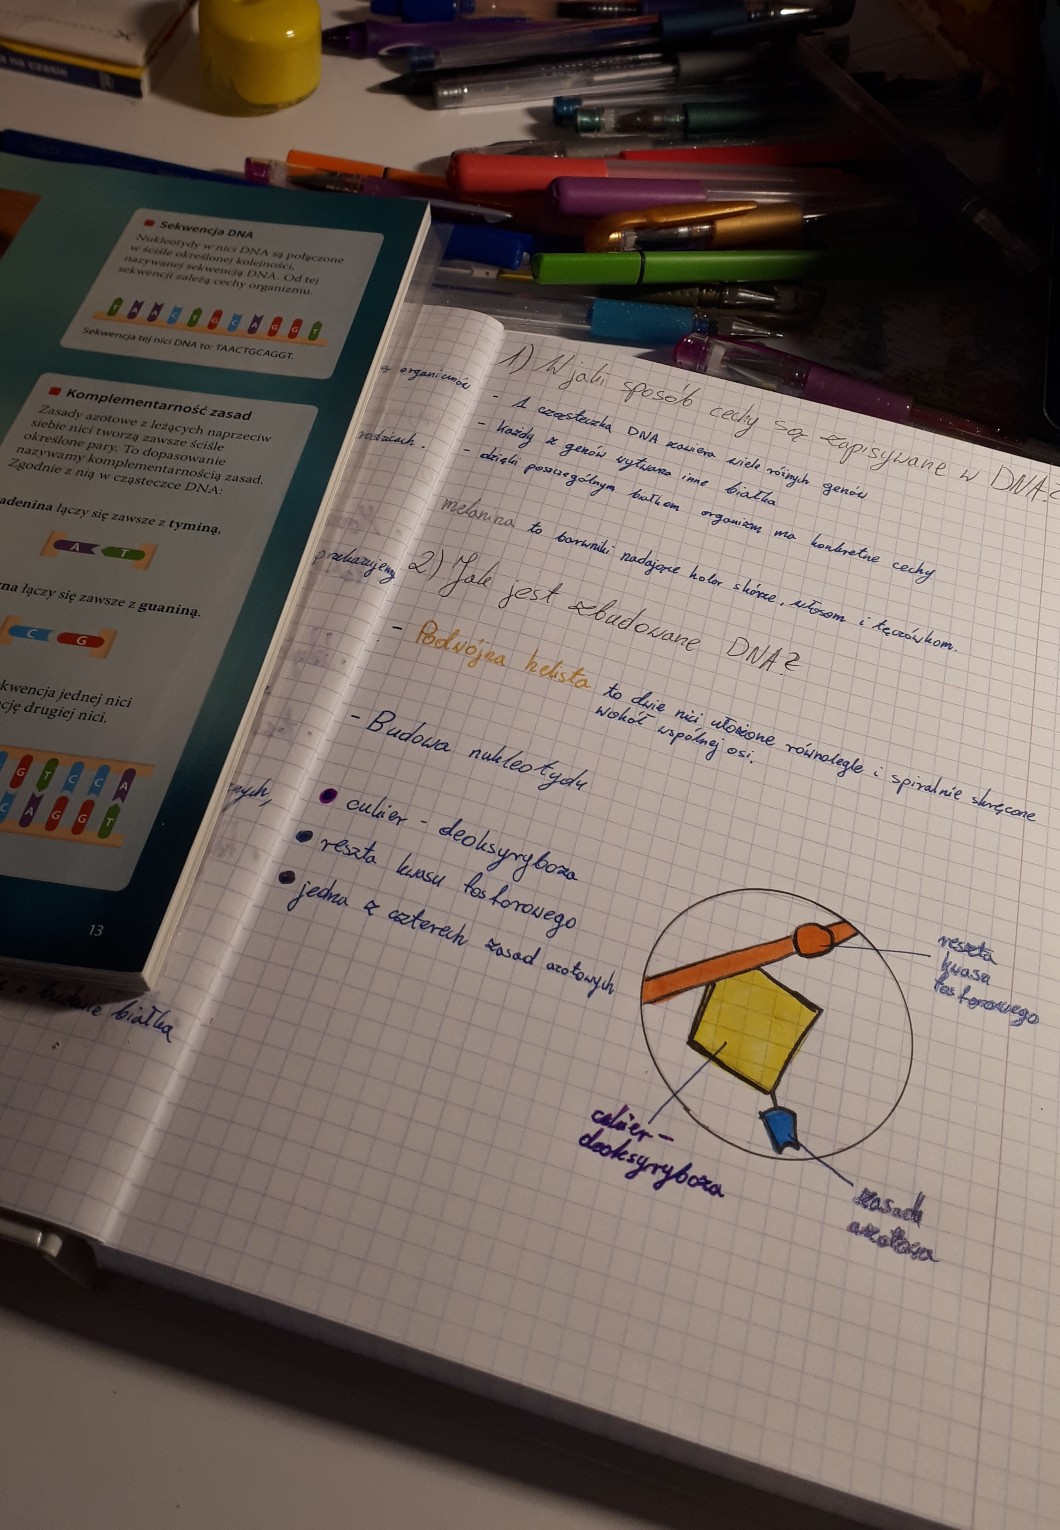 na czasie
Sekwencja DNA
Nukleotydy w nici DNA są połączone
w ściśle określonej kolejności,
nazywanej sekwencją DNA. Od tej
sekwencji zależą cechy organizmu.
T A A C T G C A G G T
Sekwencja tej nici DNA to: TAACTGCAGGT.
Komplementarność zasad
Zasady azotowe z leżących naprzeciw
siebie nici tworzą zawsze ściśle
określone pary. To dopasowanie
nazywamy komplementarnością zasad.
Zgodnie z nią w cząsteczce DNA:
adenina łączy się zawsze z tyminą,
A T
na łączy się zawsze z guaniną.
C G
kwencja jednej nici
cję drugiej nici.
G T C C A
C A G G T
13
organizmów
rodzicach.
przekazujemy
nych,
o budowie białka
1) W jaki sposób cechy są zapisywane w DNA?
- 1 cząsteczka DNA zawiera wiele różnych genów
- każdy z genów wytwarza inne białka
- dzięki poszczególnym białkom organizm ma konkretne cechy
melanina to barwniki nadające kolor skórze, włosom i tęczówkom.
2) Jak jest zbudowane DNA?
- Podwójna helisa to dwie nici ułożone równolegle i spiralnie skręcone
wokół wspólnej osi.
- Budowa nukleotydu
• cukier - deoksyryboza
• reszta kwasu fosforowego
• jedna z czterech zasad azotowych
reszta
kwasu
fosforowego
cukier -
deoksyryboza
zasada
azotowa